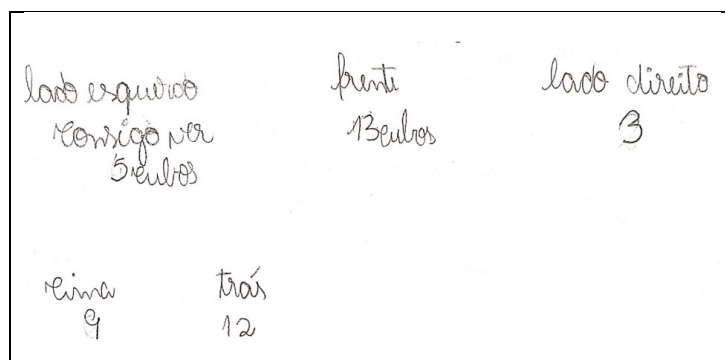 lado esquerdo
consigo ver
5 cubos
frente
13 cubos
lado direito
3
cima
9
trás
12